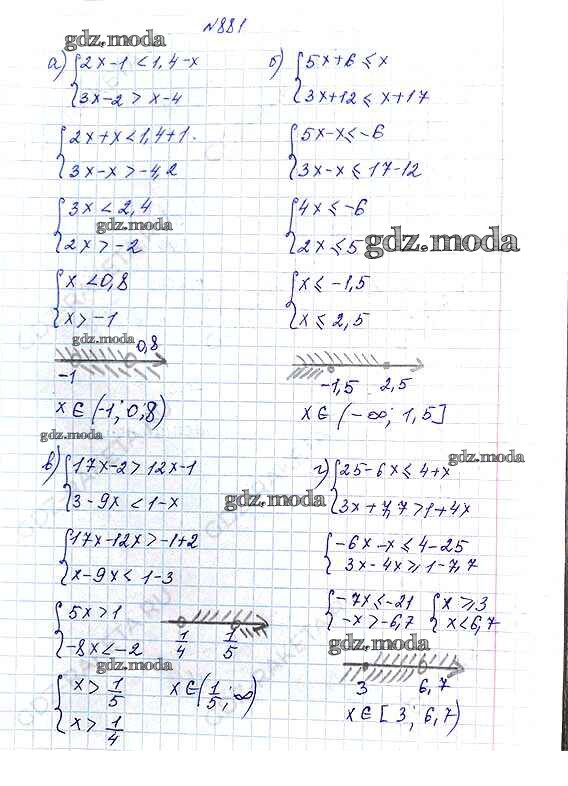 №881
gdz.moda
а) {2x-1<1,4-x
3x-2>x-4
{2x+x<1,4+1.
3x-x>-4,2
{3x<2,4
gdz.moda
2x>-2
{x<0,8
x>-1
gdz.moda
0,8
-1
x∈(-1;0,8)
gdz.moda
б) {5x+6≤x
3x+12≤x+17
{5x-x≤-6
3x-x≤17-12
{4x≤-6
2x≤5
gdz.moda
{x≤-1,5
x≤2,5
-1,5 2,5
x∈(-∞; 1,5]
в) {17x-2>12x-1
3-9x<1-x
gdz.moda
{17x-12x>-1+2
x-9x<1-3
{5x>1
-8x<-2
1/4 1/5
gdz.moda
{x>1/5
x>1/4
x∈(1/5;∞)
gdz.moda
г) {25-6x≤4+x
3x+7,7>1+4x
{-6x-x≤4-25
3x-4x≥1-7,7
{-7x≤-21 {x≥3
-x>-6,7 x<6,7
gdz.moda
3 6,7
x∈[3; 6,7)